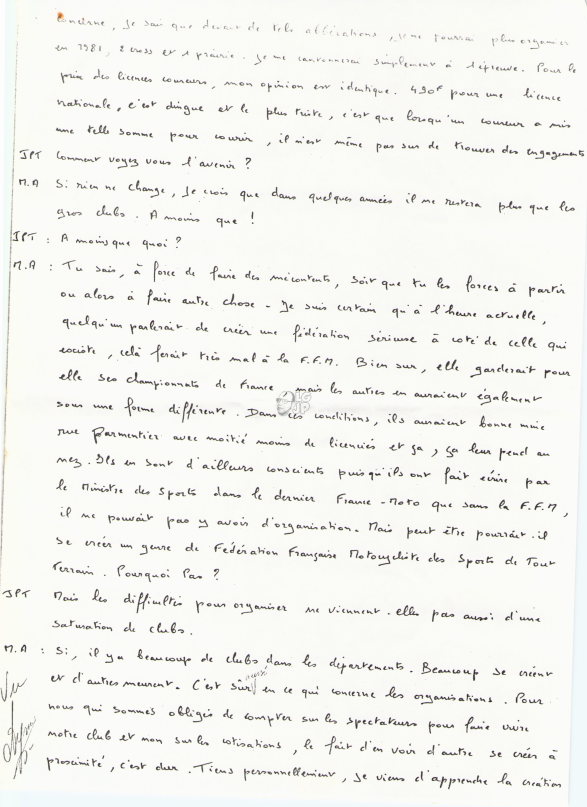 concerne, je sais que devant de tels allégations, je ne pourrai plus organiser
en 1981, 2 cross et 1 prairie. Je me cantonnerai simplement à 1 épreuve. Pour le
prix des licences coureurs, mon opinion est identique. 490F pour une licence
nationale, c'est dingue et le plus triste, c'est que lorsqu'un coureur a mis
une telle somme pour courir, il n'est même pas sur de trouver des engagements
JPT Comment voyez vous l'avenir ?
M.A Si rien ne change, je crois que dans quelques années il ne restera plus que les
gros clubs. A moins que !
JPT : A moins que quoi ?
M.A : Tu sais, à force de faire des mécontents, soit que tu les forces à partir
ou alors à faire autre chose - Je suis certain qu'à l'heure actuelle,
quelqu'un parlerait de créer une fédération sérieuse à coté de celle qui
existe, celà ferait très mal à la F.F.M. Bien sur, elle garderait pour
elle ses championnats de France, mais les autres en auraient également
sous une forme différente. Dans ces conditions, ils auraient bonne mine
rue Parmentier avec moitié moins de licenciés et ça, ça leur pend au
nez. Ils en sont d'ailleurs conscients puisqu'ils ont fait écrire par
le Ministre des Sports dans le dernier France-Moto que sans la F.F.M,
il ne pouvait pas y avoir d'organisation. Mais peut être pourrait-il
se créer un genre de Fédération Française Motocycliste des Sports de Tout
Terrain. Pourquoi Pas ?
JPT Mais les difficultés pour organiser ne viennent-elles pas aussi d'une
saturation de clubs.
M.A : Si, il y a beaucoup de clubs dans les départements. Beaucoup se créent
et d'autres meurent. C'est sûr aussi en ce qui concerne les organisations. Pour
nous qui sommes obligés de compter sur les spectateurs pour faire vivre
notre club et non sur les cotisations, le fait d'en voir d'autre se créer à
proximité, c'est dur. Tiens personnellement, je viens d'apprendre la création
Vu